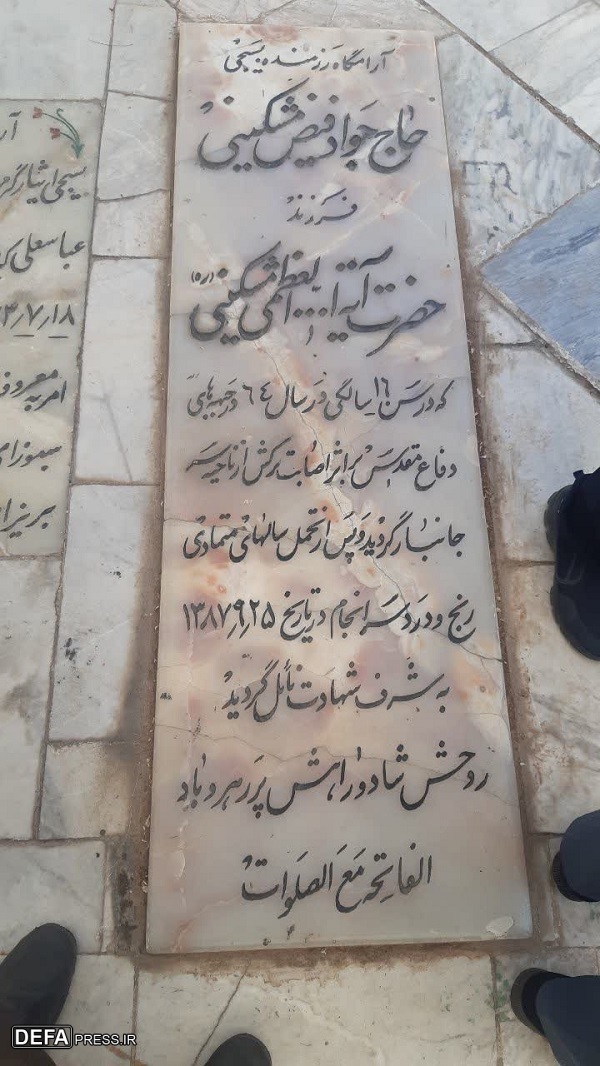 آرامگاه رزمنده بسیجی
حاج جواد فیض مشکینی
فرزند
حضرت آیة ا... العظمی مشکینی (ره)
که در سن ١٦ سالگی در سال ٦٤ در جبهه های
دفاع مقدس بر اثر اصابت ترکش از ناحیه سر
جانباز گردید و پس از تحمل سالهای متمادی
رنج و درد سرانجام در تاریخ ١٣٨٧٫٩٫٢٥
به شرف شهادت نائل گردید
روحش شاد و راهش پر رهرو باد
الفاتحة مع الصلوات
بسیجی ایثارگر
عباسعلی
٣٫٧٫١٨
امر به معروف
DEFAPRESS.IR